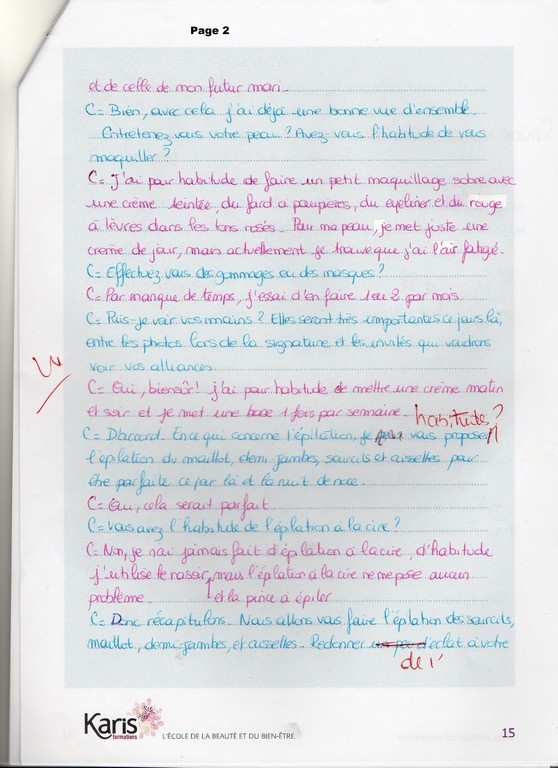 Page 2
et de celle de mon futur mari.
C= Bien, avec cela j'ai déjà une bonne vue d'ensemble.
Entretenez vous votre peau ? Avez-vous l'habitude de vous
maquiller ?
C= J'ai pour habitude de faire un petit maquillage sobre avec
une crème teintée, du fard à paupères, du eyeliner et du rouge
à lèvres dans les tons rosés. Pour ma peau, je met juste une
creme de jour, mais actuellement je trouve que j'ai l'air fatigé.
C= Effectuez vous des gommages ou des masques ?
C= Par manque de temps, j'essai d'en faire 1 ou 2 par mois.
C= Puis-je voir vos mains ? Elles seront très importantes ce jours là,
entre les photos lors de la signature et les invités qui voudrons
voir vos alliances.
C= Oui, biensûr ! j'ai pour habitude de mettre une crème matin
et soir et je met une base 1 fois par semaine.
habitudes ?
C= D'accord. En ce qui concerne l'épilation, je vous propose
l'épilation du maillot, demi-jambes, sourcils et aisselles pour
être parfaite ce jour là et la nuit de noce.
C= Oui, cela serait parfait.
C= Vous avez l'habitude de l'épilation à la cire ?
C= Non, je n'ai jamais fait d'épilation à la cire, d'habitude
j'utilise le rasoir, mais l'épilation à la cire ne me pose aucun
problème. et la pince à épiler
C= Donc récapitulons. Nous allons vous faire l'épilation des sourcils,
maillot, demi-jambes, et aisselles. Redonner un peu d'éclat à votre
de l'
Karis
formations
L'ÉCOLE DE LA BEAUTÉ ET DU BIEN-ÊTRE.
15